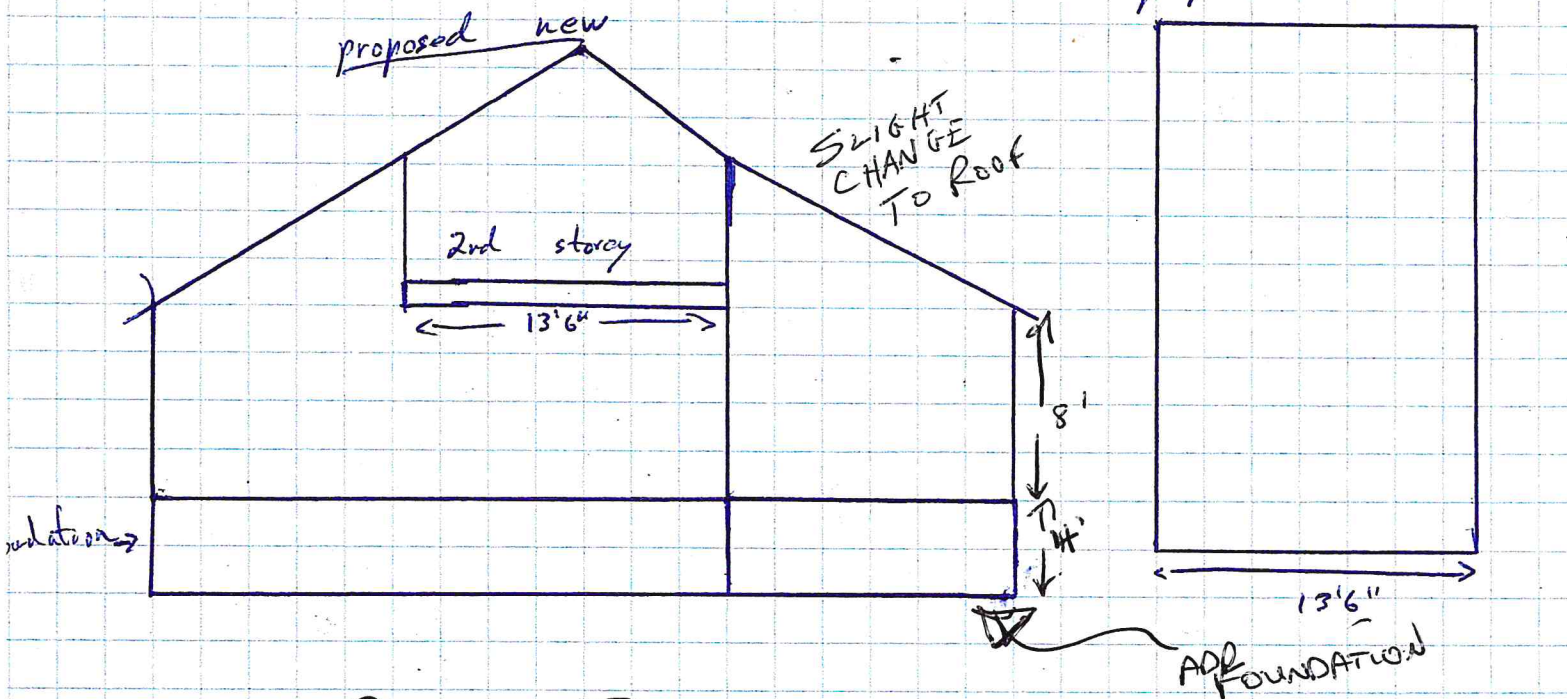 proposed new
SLIGHT
CHANGE
TO ROOF
2nd storey
13'6"
8'
4'
13'6"
ADD
FOUNDATION